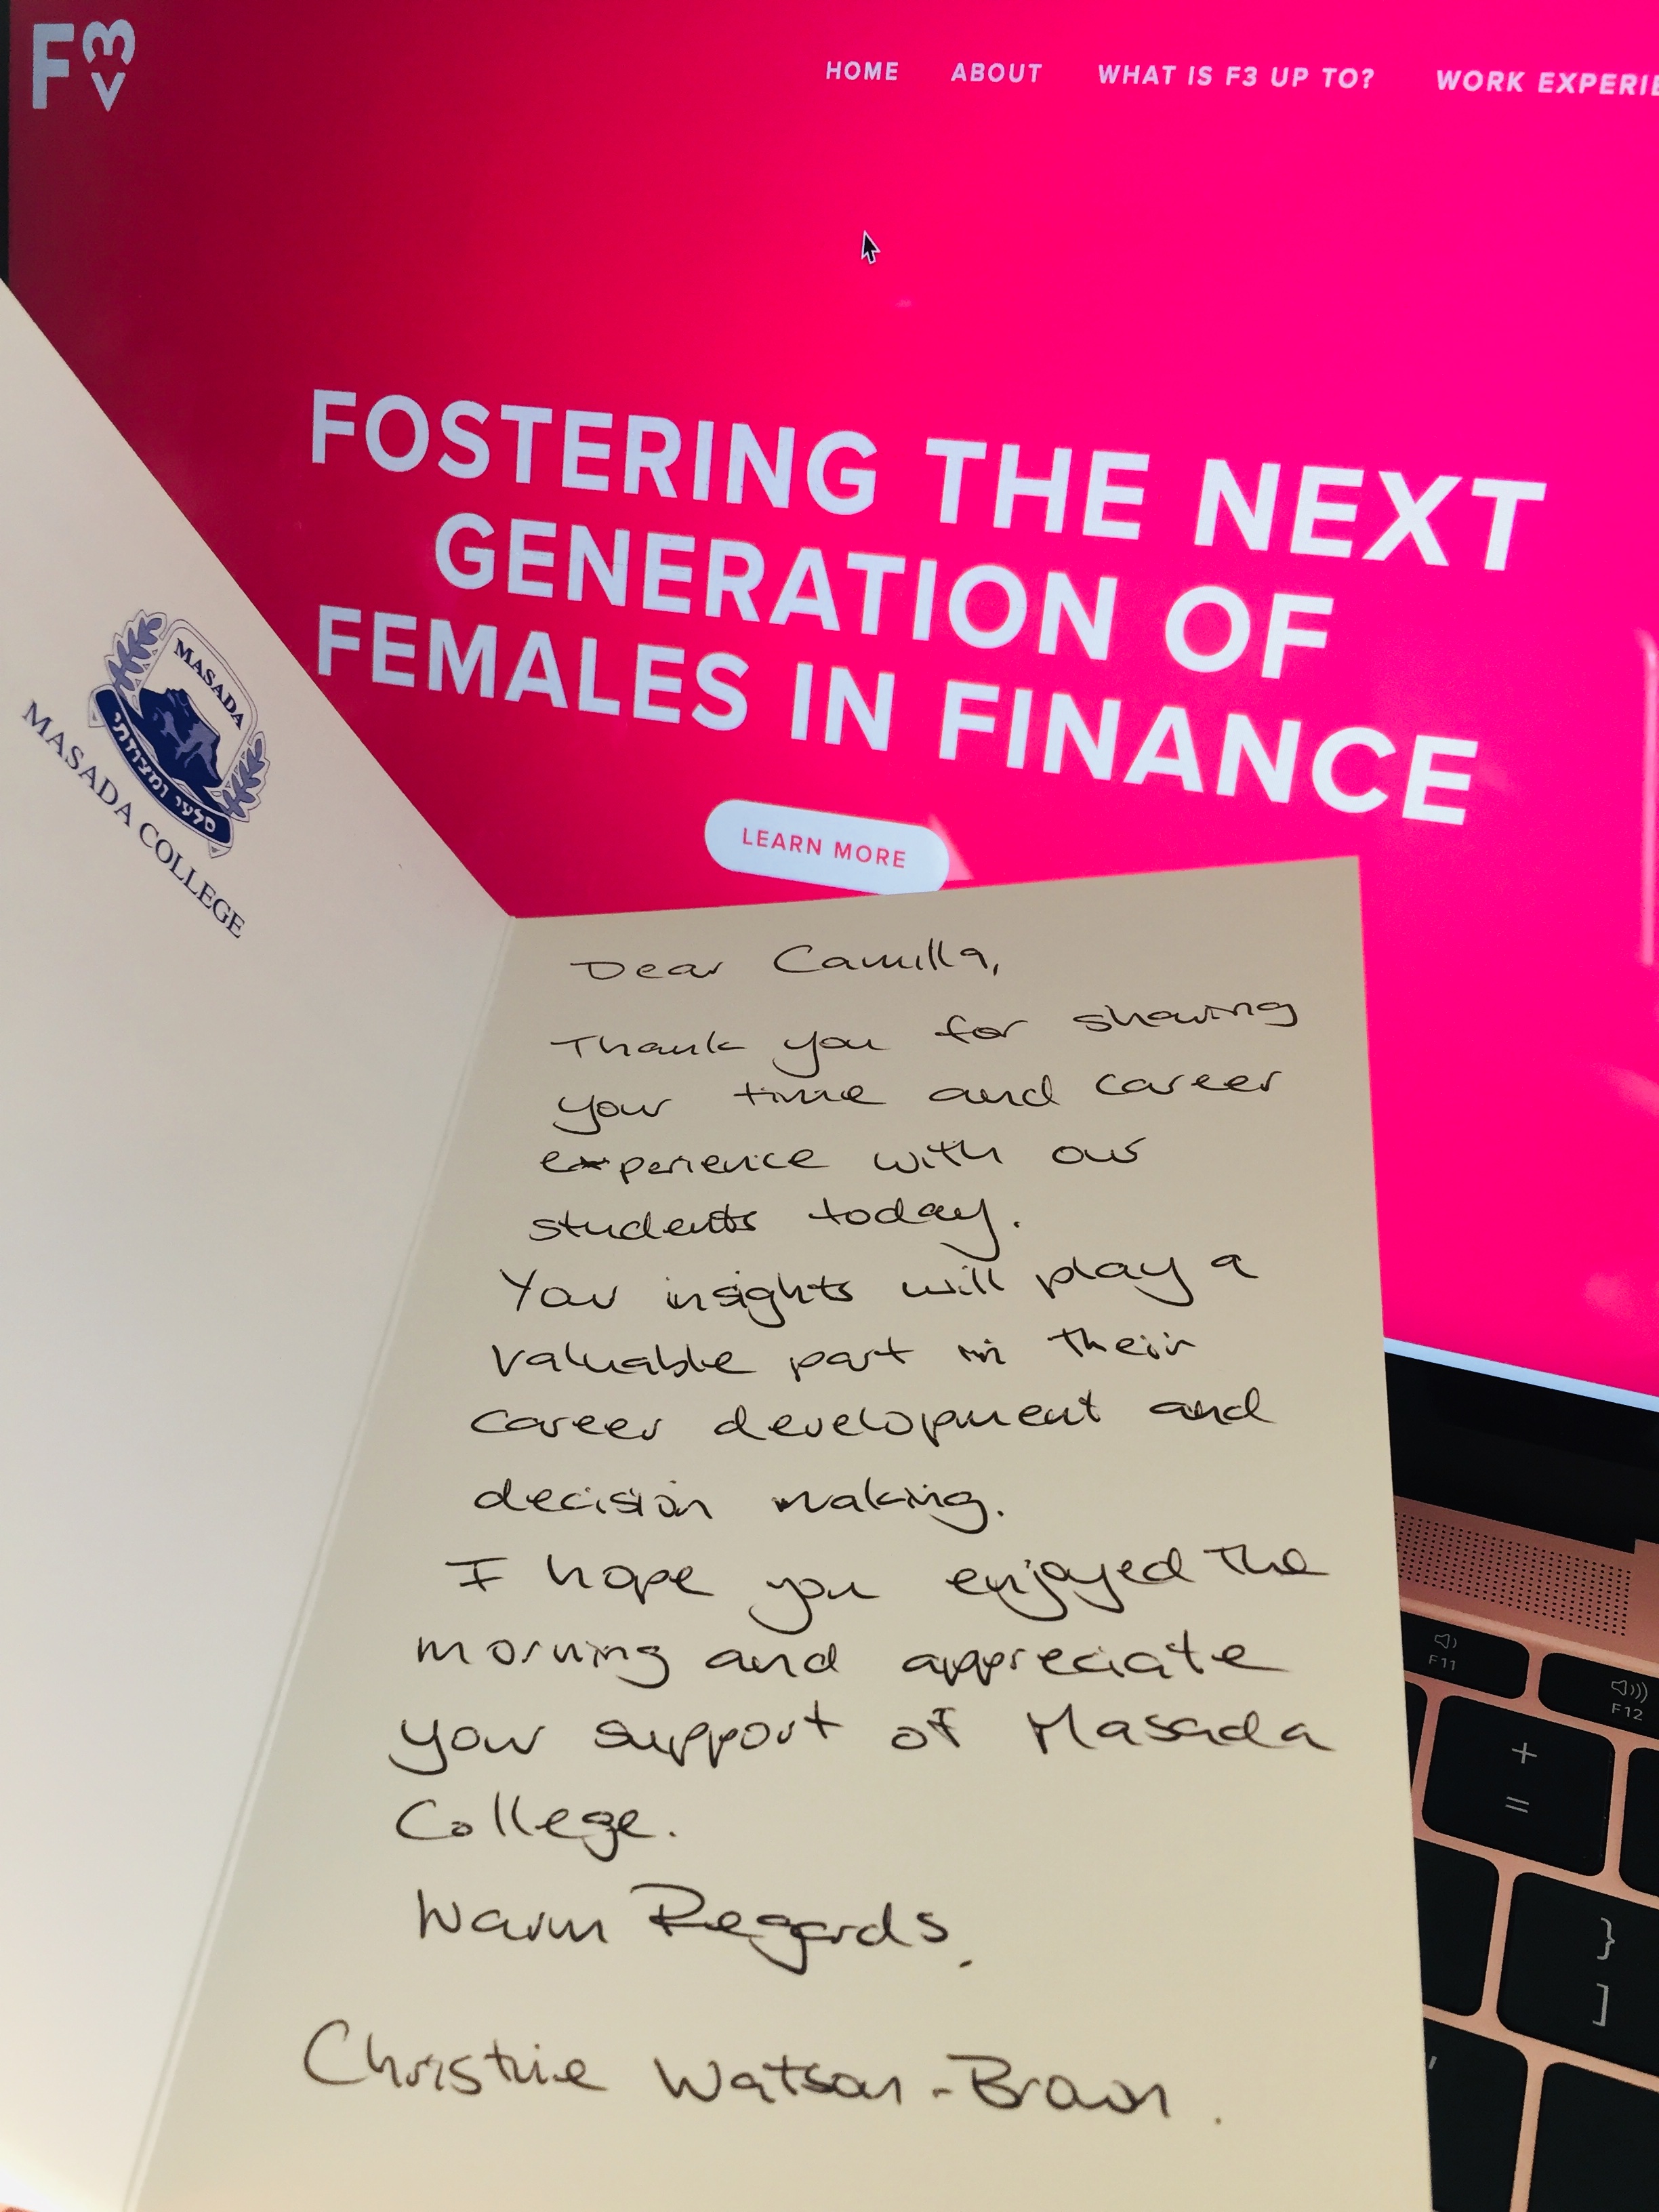 F3
HOME ABOUT WHAT IS F3 UP TO? WORK EXPERIE
FOSTERING THE NEXT
GENERATION OF
FEMALES IN FINANCE
LEARN MORE
MASADA
סלעי ומצודתי
MASADA COLLEGE
Dear Camilla,
Thank you for sharing
your time and career
experience with our
students today.
Your insights will play a
valuable part in their
career development and
decision making.
I hope you enjoyed the
morning and appreciate
your support of Masada
College.
Warm Regards,
Christine Watson-Brown.
F11
F12
+
=
}
]